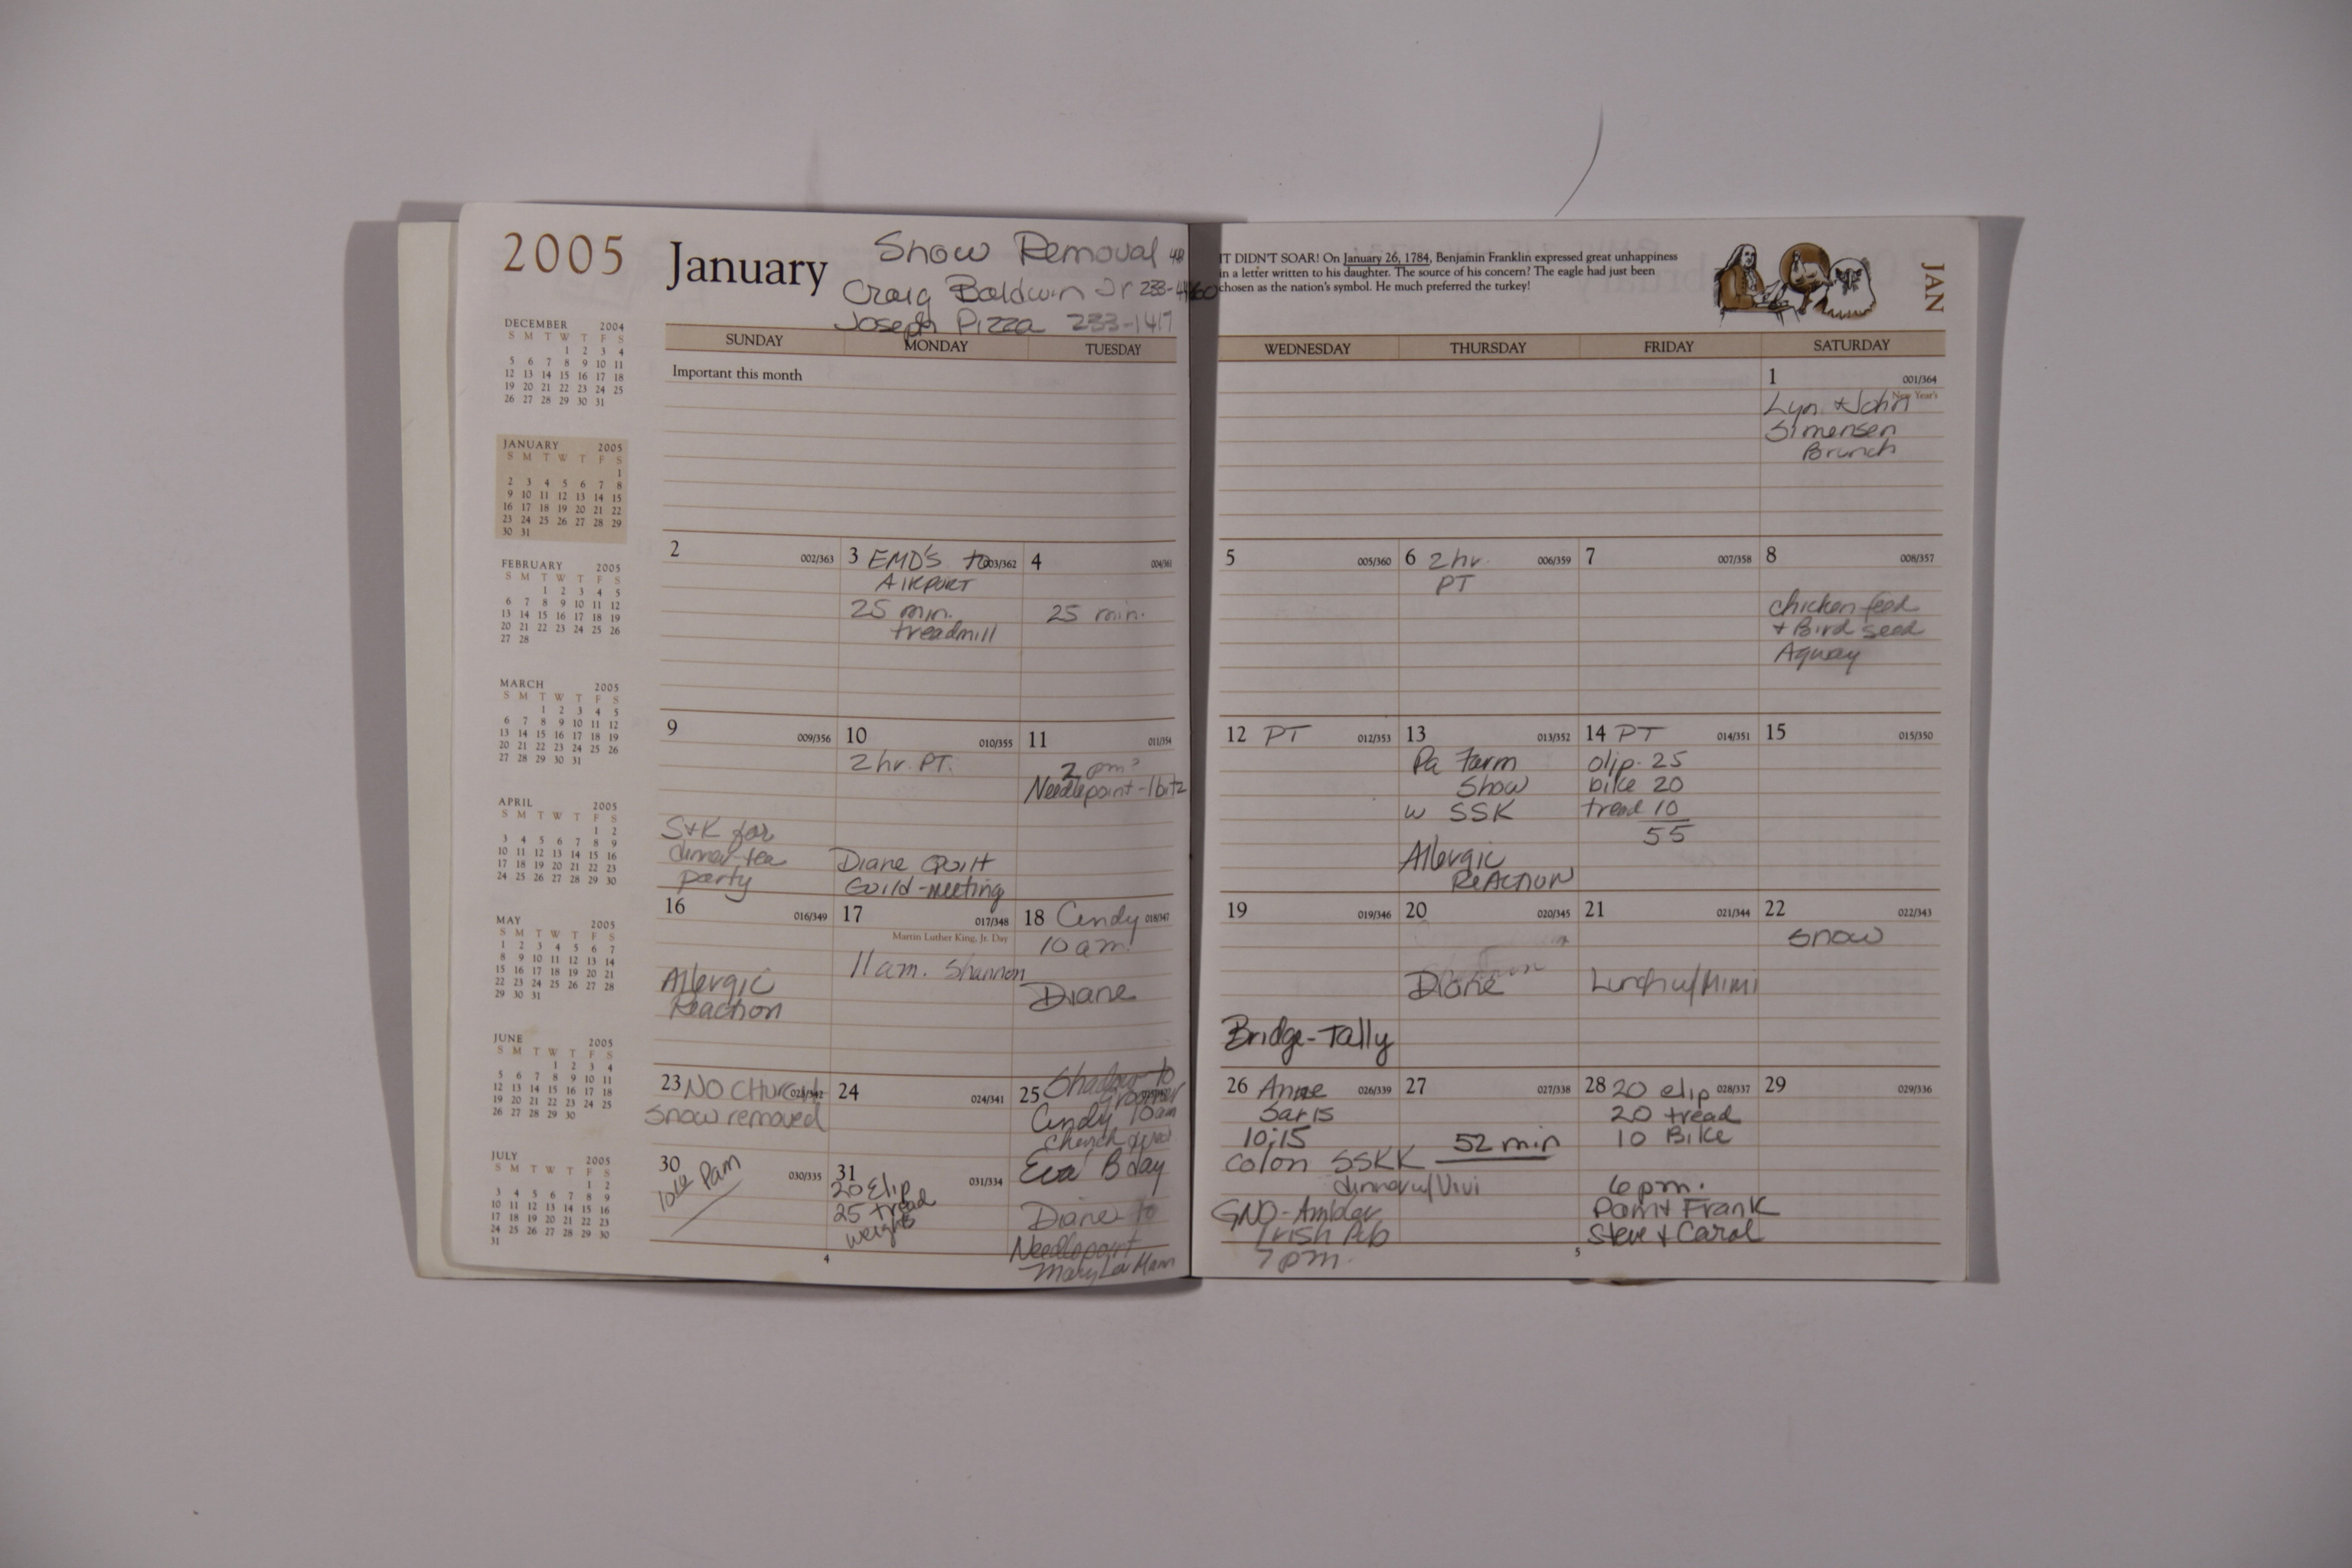 2005
DECEMBER 2004
S M T W T F S
1 2 3 4
5 6 7 8 9 10 11
12 13 14 15 16 17 18
19 20 21 22 23 24 25
26 27 28 29 30 31
JANUARY 2005
S M T W T F S
1
2 3 4 5 6 7 8
9 10 11 12 13 14 15
16 17 18 19 20 21 22
23 24 25 26 27 28 29
30 31
FEBRUARY 2005
S M T W T F S
1 2 3 4 5
6 7 8 9 10 11 12
13 14 15 16 17 18 19
20 21 22 23 24 25 26
27 28
MARCH 2005
S M T W T F S
1 2 3 4 5
6 7 8 9 10 11 12
13 14 15 16 17 18 19
20 21 22 23 24 25 26
27 28 29 30 31
APRIL 2005
S M T W T F S
1 2
3 4 5 6 7 8 9
10 11 12 13 14 15 16
17 18 19 20 21 22 23
24 25 26 27 28 29 30
MAY 2005
S M T W T F S
1 2 3 4 5 6 7
8 9 10 11 12 13 14
15 16 17 18 19 20 21
22 23 24 25 26 27 28
29 30 31
JUNE 2005
S M T W T F S
1 2 3 4
5 6 7 8 9 10 11
12 13 14 15 16 17 18
19 20 21 22 23 24 25
26 27 28 29 30
JULY 2005
S M T W T F S
1 2
3 4 5 6 7 8 9
10 11 12 13 14 15 16
17 18 19 20 21 22 23
24 25 26 27 28 29 30
31
January
Snow Removal
Craig Baldwin Jr
Joseph Pizza 233-1417
IT DIDN'T SOAR! On January 26, 1784, Benjamin Franklin expressed great unhappiness
in a letter written to his daughter. The source of his concern? The eagle had just been
chosen as the nation's symbol. He much preferred the turkey!
JAN
SUNDAY MONDAY TUESDAY WEDNESDAY THURSDAY FRIDAY SATURDAY
Important this month
1 001/364
New Year's
Lyn + John
Simensen
Brunch
2 002/363
3 EMD'S to 003/362
AIRPORT
25 min.
treadmill
4 004/361
25 min.
5 005/360
6 2 hr. 006/359
PT
7 007/358
8 008/357
chicken feed
+ Bird seed
Agway
9 009/356
S+K for
dinner-tea
party
10 010/355
2 hr. PT.
Diane Quilt
Guild-meeting
11 011/354
2 pm
Needlepoint-
12 PT 012/353
13 013/352
Pa Farm
Show
w SSK
Allergic
REACTION
14 PT 014/351
olip. 25
bike 20
tread 10
55
15 015/350
16 016/349
Allergic
Reaction
17 017/348
Martin Luther King, Jr. Day
11 am. Shannon
18 Cindy 018/347
10 am.
Diane
19 019/346
Bridge-Tally
20 020/345
Diane
21 021/344
Lunch w/Mimi
22 022/343
snow
23 NO CHURCH 023/342
snow removed
24 024/341
25 Shadow to
groomer
Cindy 10am
Church
Eva B day
Diane to
Needlepoint
Mary Lou Mann
26 Anne 026/339
10:15
colon SSKK
GNO-Ambler
Irish Pub
7 pm.
27 027/338
52 min
dinner w/Vivi
28 20 elip 028/337
20 tread
10 Bike
6 pm.
Pam+ Frank
Steve + Carol
29 029/336
30 030/335
Pam
31 031/334
20 Elip
25 tread
weights
4
5